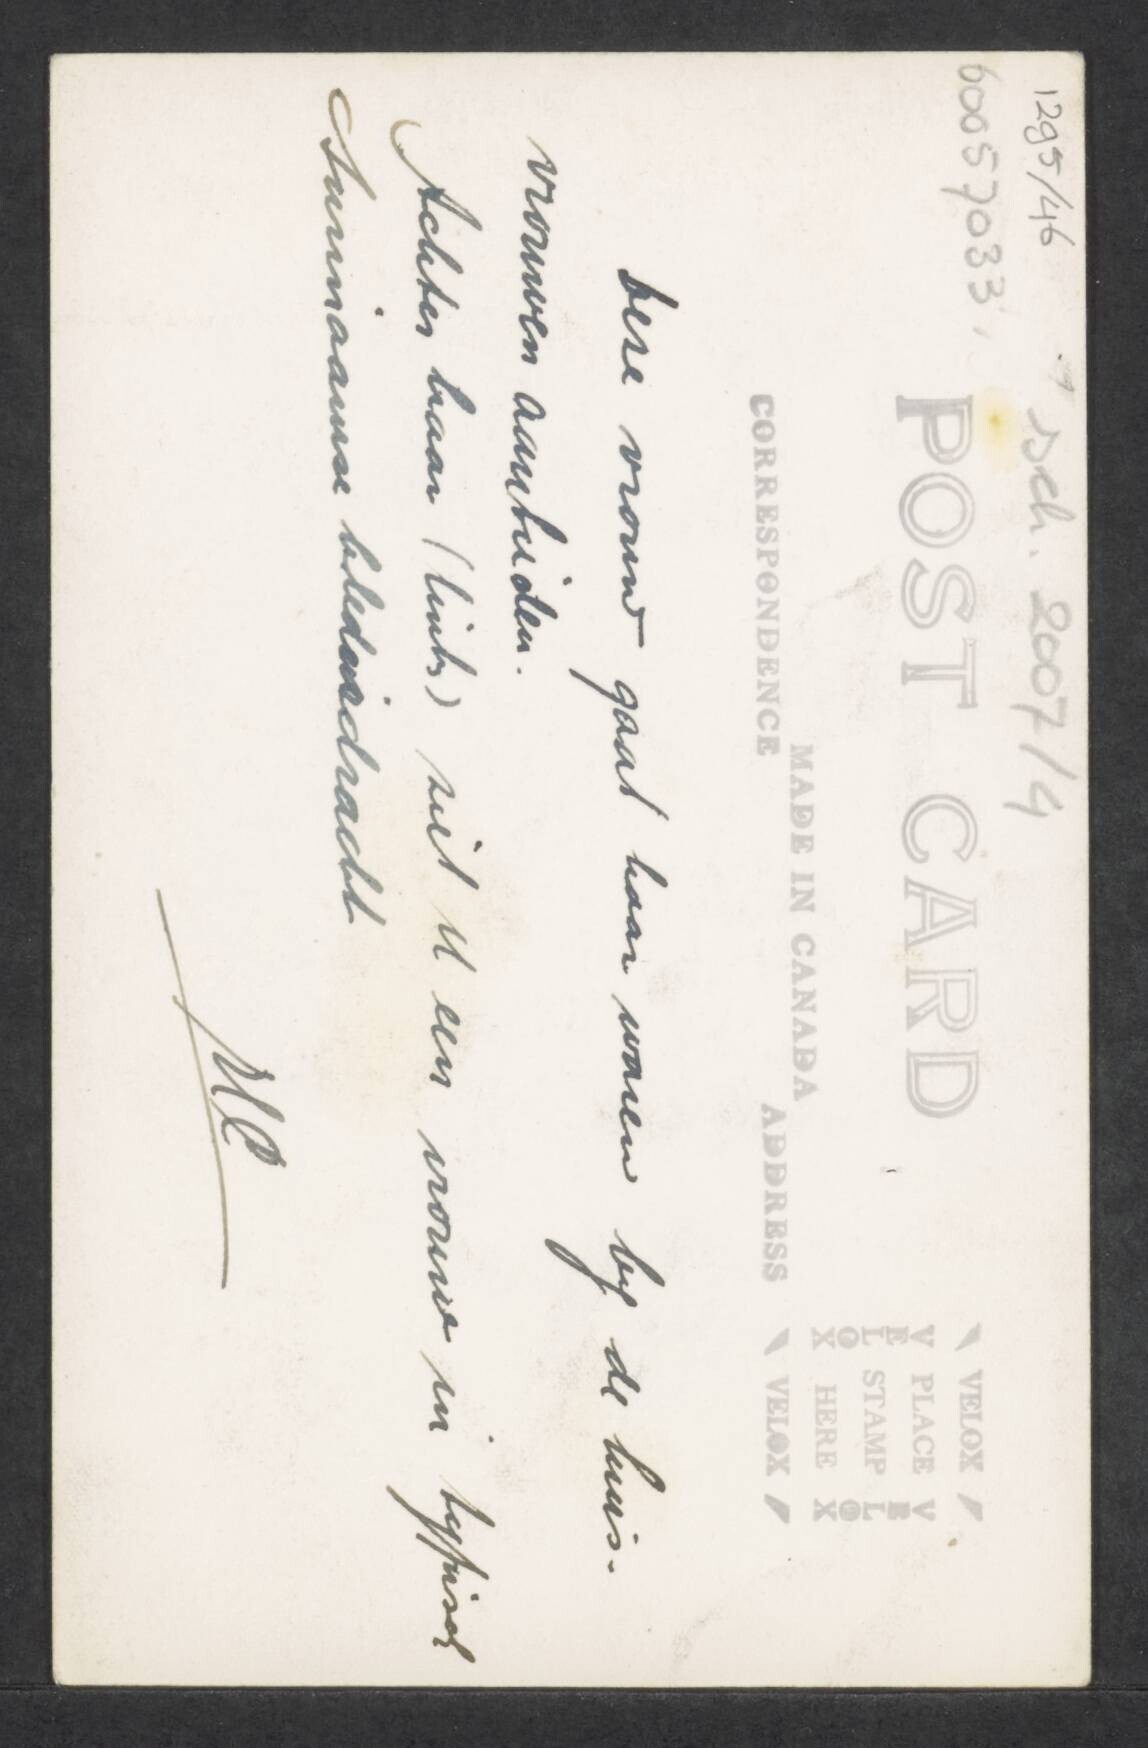 1295/46 " sch. 2007/4
60057033,
POST CARD
MADE IN CANADA
CORRESPONDENCE ADDRESS
VELOX
V PLACE V
E E
L STAMP L
O O
X HERE X
VELOX
Deze vrouw gaat haar waren by de huis-
vrouwen aanbieden.
Achter haar (links) ziet U een vrouw in typisch
Surinaamse klederdracht